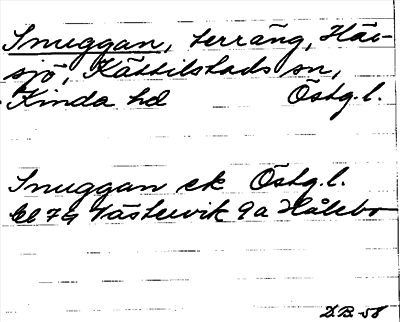 Snuggan, terräng, Häv-
sjö, Kättilstads sn,
Kinda hd Östg.l.
Snuggan ek Östg.l.
bl 74 Västervik 9a Hålebo
D.B.-58